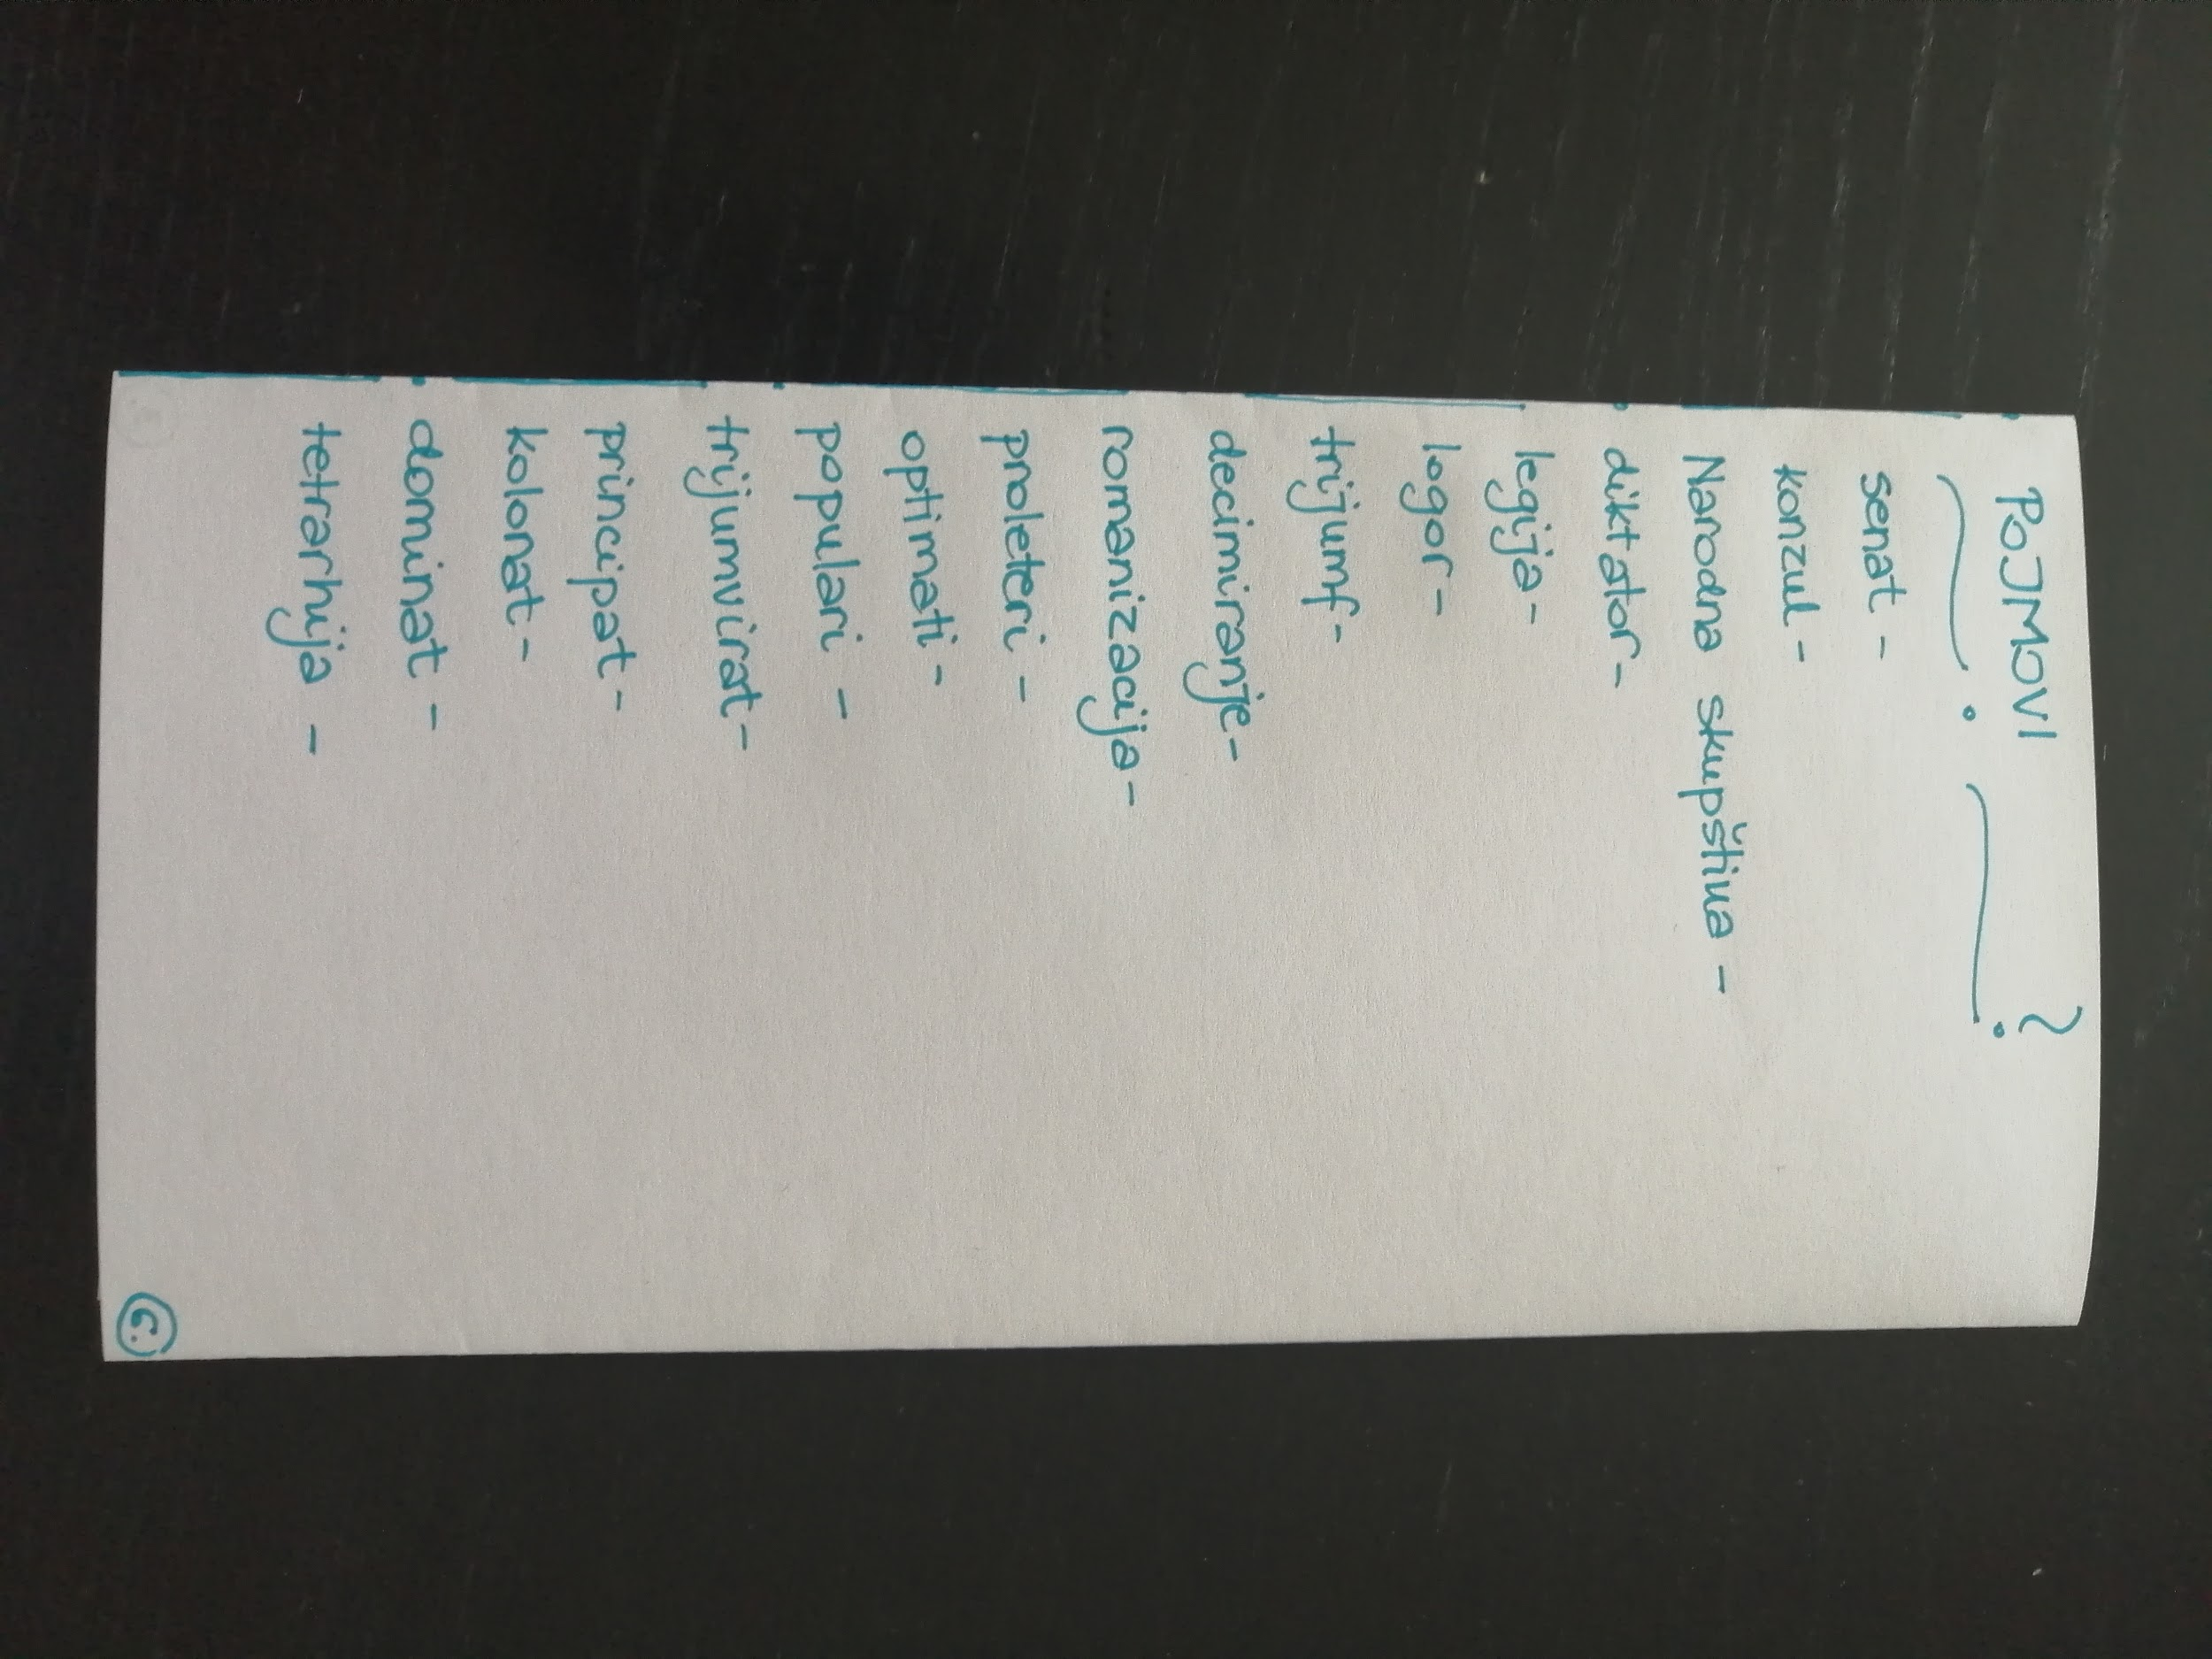 POJMOVI ?
senat -
konzul -
Narodna skupština -
diktator -
legija -
logor -
trijumf -
decimiranje -
romanizacija -
proleteri -
optimati -
populari -
trijumvirat -
principat -
kolonat -
dominat -
tetrarhija -
6.